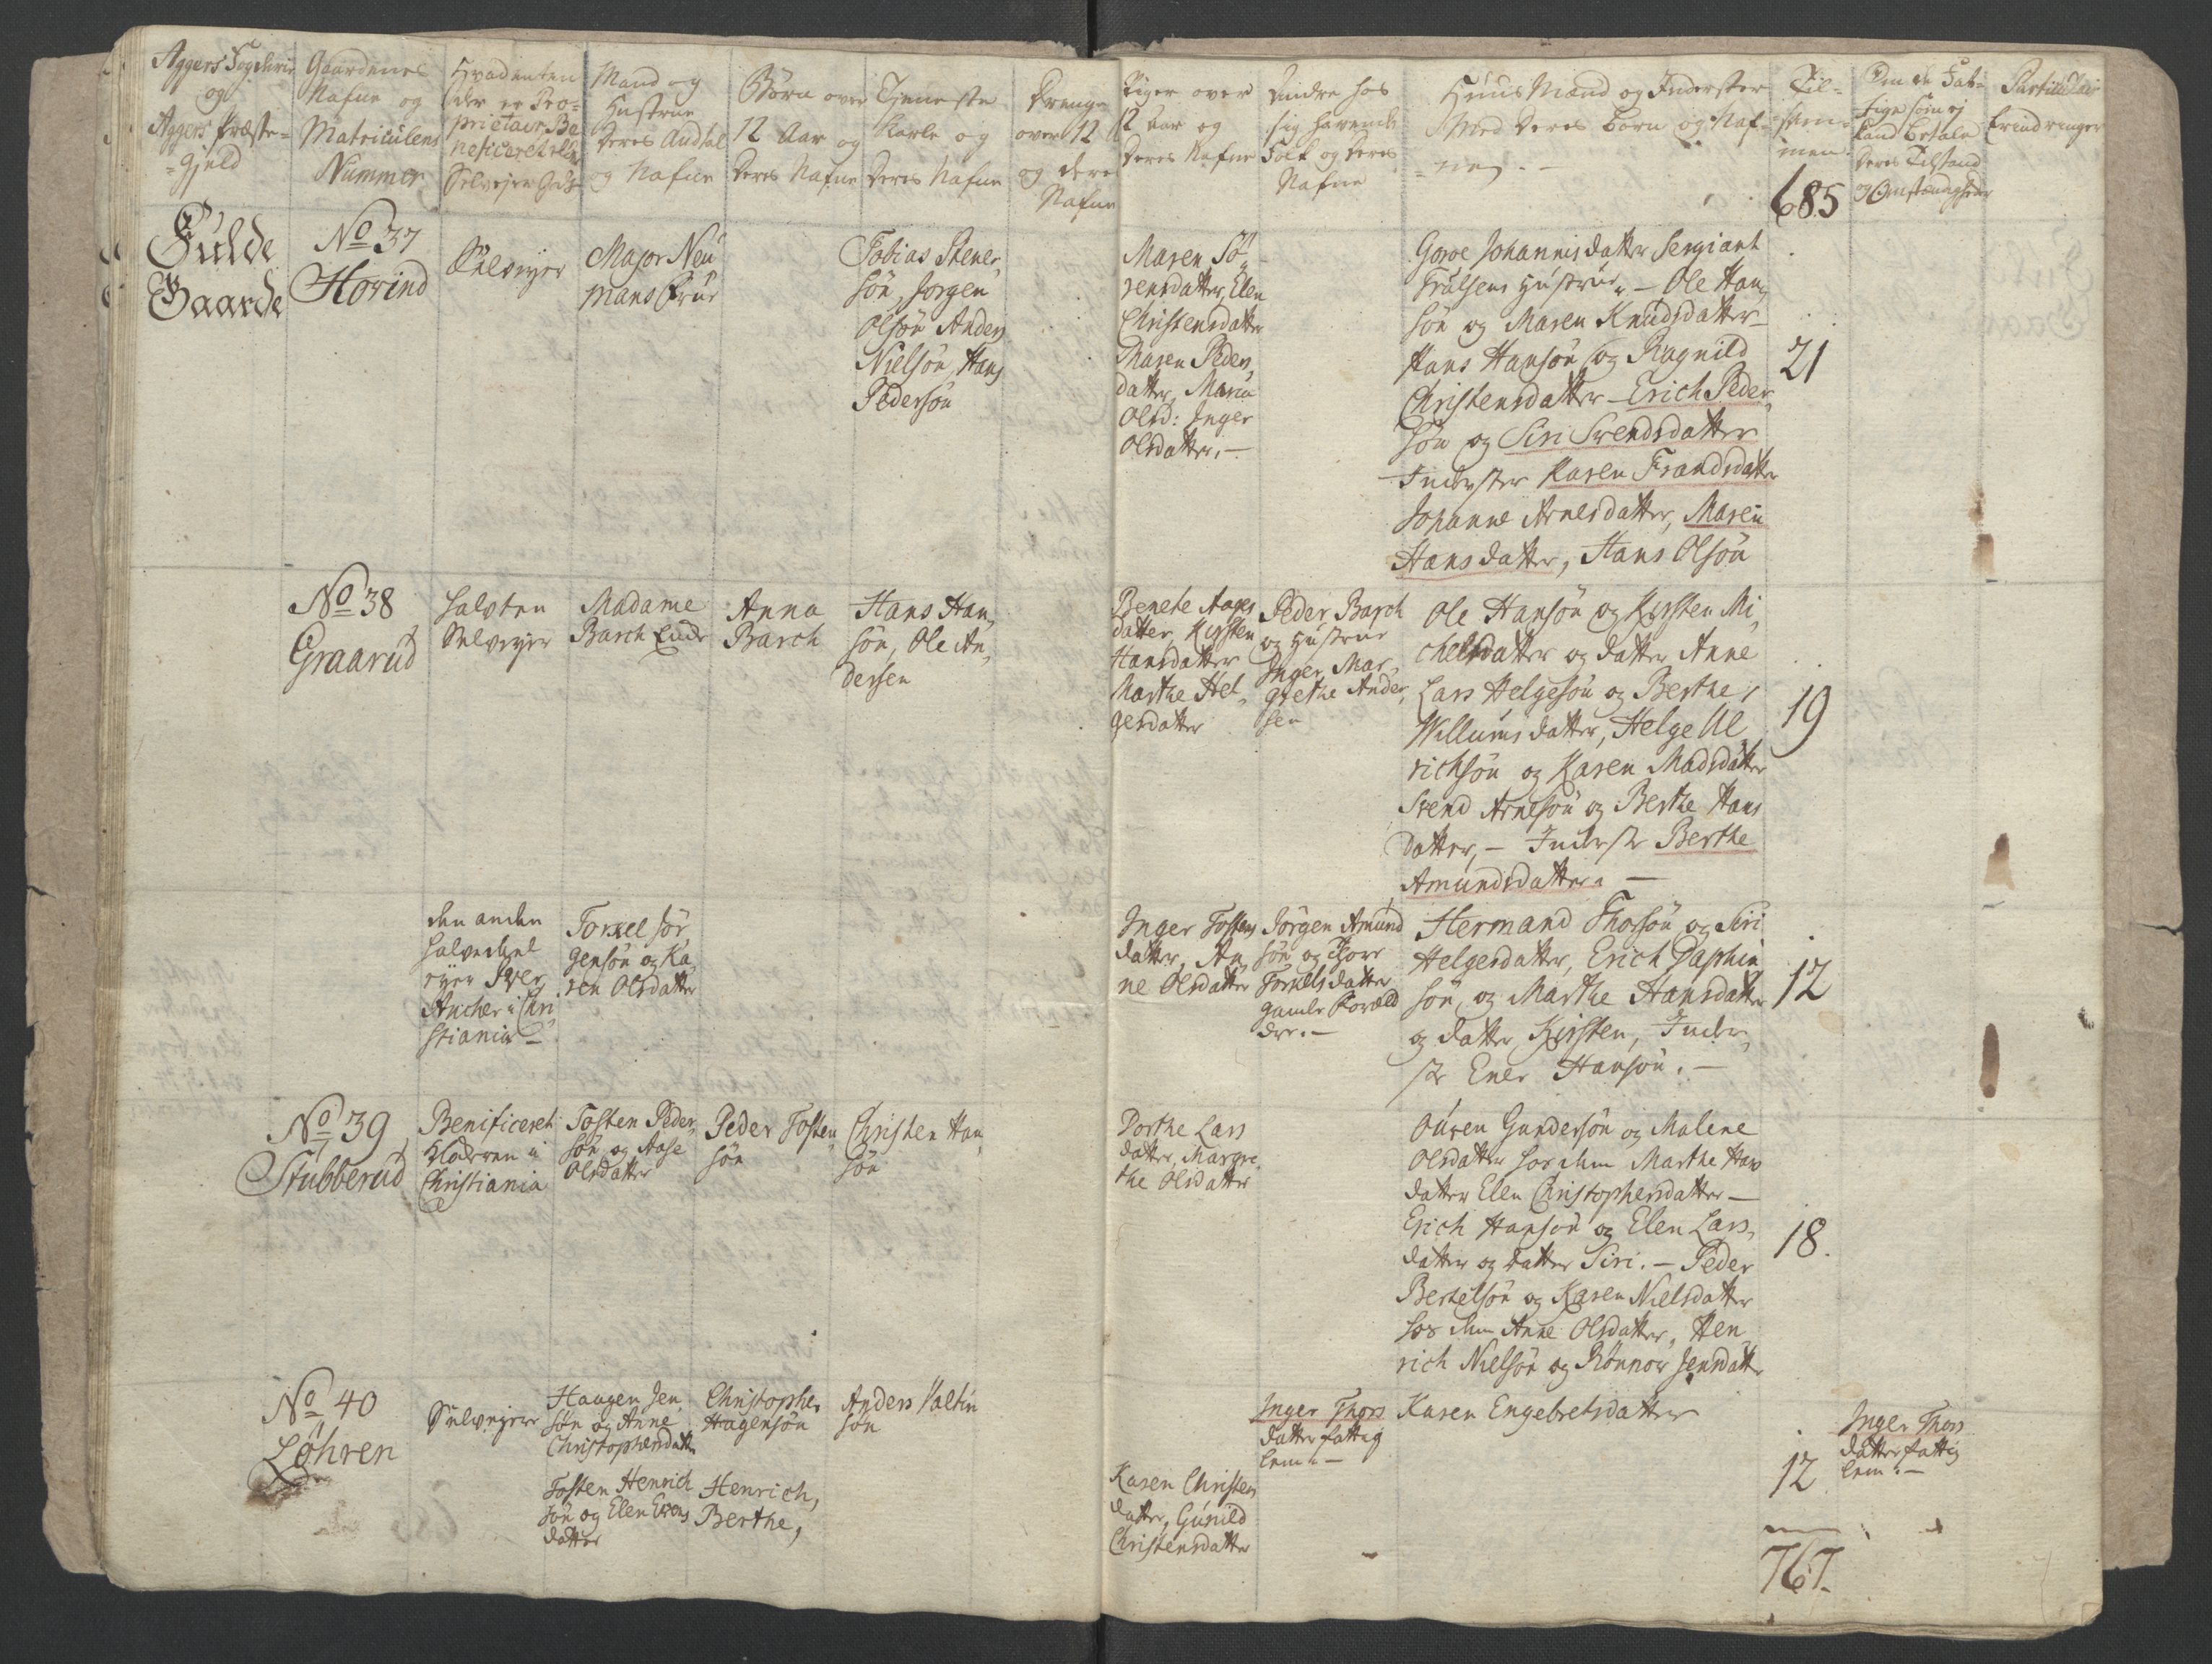 Aggers Fogderie
og
Aggers Præste-
-Gjeld
Gaardenes
Nafne og
Matriculens
Nummer
Hvad enten
der er Pro-
prietair, Be
neficeret eller
Selvejer Gods
Mand og
Hustrue
deres Andtal
og Nafne
Børn over
12 Aar og
deres Nafne
Tjeneste
Karle og
deres Nafne
Drenge
over 12
og deres
Nafne
Piger over
12 Aar og
deres Nafne
Andre hos
sig havende
Folk og deres
Nafne
Huus Mænd og Inderster
med deres børn og Naf-
-ne
Til-
sam-
men
685
Om de Fat-
tige som ej
kand betale
deres Tilstand
og Omstændigheder
Particulair
Erindringer
Fulde
Gaarde
No 37
Hovind
Selveyer
Major Neu
mans Frue
Tobias Stener,
søn, Jørgen
Olsøn Anders
Nielsøn, Hans
Pedersøn
Maren Sø,
rensdatter, Elen
Christensdatter
Maren Peders,
datter, Maria
Olsd: Inger
Olsdatter,-
Goroe Johannisdatter Sergiant
Trulsens Hustrue, - Ole Han,
søn og Maren Knudsdatter-
Hans Hansøn og Ragnild
Christensdatter - Erich Peder,
søn og Siri Svendsdatter
Inderster Karen Frandsdatter
Johanne Arnesdatter, Maren
Hansdatter, Hans Olsøn
21
No 38
Graarud
halvten
Selveyer
Madame
Barch Enke
Anna
Barch
Hans Han,
søn, Ole An,
dersen
Benete Aages
datter, Kirsten
Hansdatter
Marthe Hel,
gesdatter
Peder Barch
og Hustrue
Inger Mar,
grethe Ander,
sen
Ole Hansøn og Kirsten Mi,
chelsdatter og datter Anne
Lars Helgesøn og Berthe,
Willumsdatter, Helge Ul,
richsøn og Karen Madsdatter
Svend Arnesøn og Berthe Hans
datter, - Inderste Berthe
Amundsdatter. -
19
den anden
halvedeel
eyer Iver
Ancher i Chri
stiania -
Torkel Jør
gensøn og Ka,
ren Olsdatter
Inger Tostens
datter, An,
ne Olsdatter
Jørgen Amund
søn og Thore
Torkelsdatter
gamle Foræld
dre. -
Hermand Thosøn og Siri
Helgesdatter, Erich Daphin
søn, og Marthe Hansdatter
og datter Kirsten, Inder,
ste Ener Hansøn. -
12
No 39
Stubberud
Benificeret
Klosteren i
Christiania
Tosten Peder,
søn og Aase
Olsdatter
Peder Tosten,
søn
Christen Han,
søn
Dorthe Lars
datter, Margre
the Olsdatter
Ouren Gundersøn og Malene
Olsdatter hos dem Marthe Hans
datter Elen Christophersdatter -
Erich Hansøn og Elen Lars,
datter og datter Siri. - Peder
Bertelsøn og Karen Nielsdatter
hos dem Anne Olsdatter, Hen
rich Nielsøn og Rønnov Jensdatt
18.
No 40
Løhren
Selvejere
Haagen Jen
søn og Anne
Christophersdatt
Christopher
Hagensøn
Anders Valtin
søn
Inger Thors
datter fattig
lem. -
Karen Engebretsdatter
12
Inger Thors
datter fattig
lem. -
Tosten Henrich
søn og Elen Evens
datter
Henrich,
Berthe,
Karen Christens
datter, Gunild
Christensdatter
767.